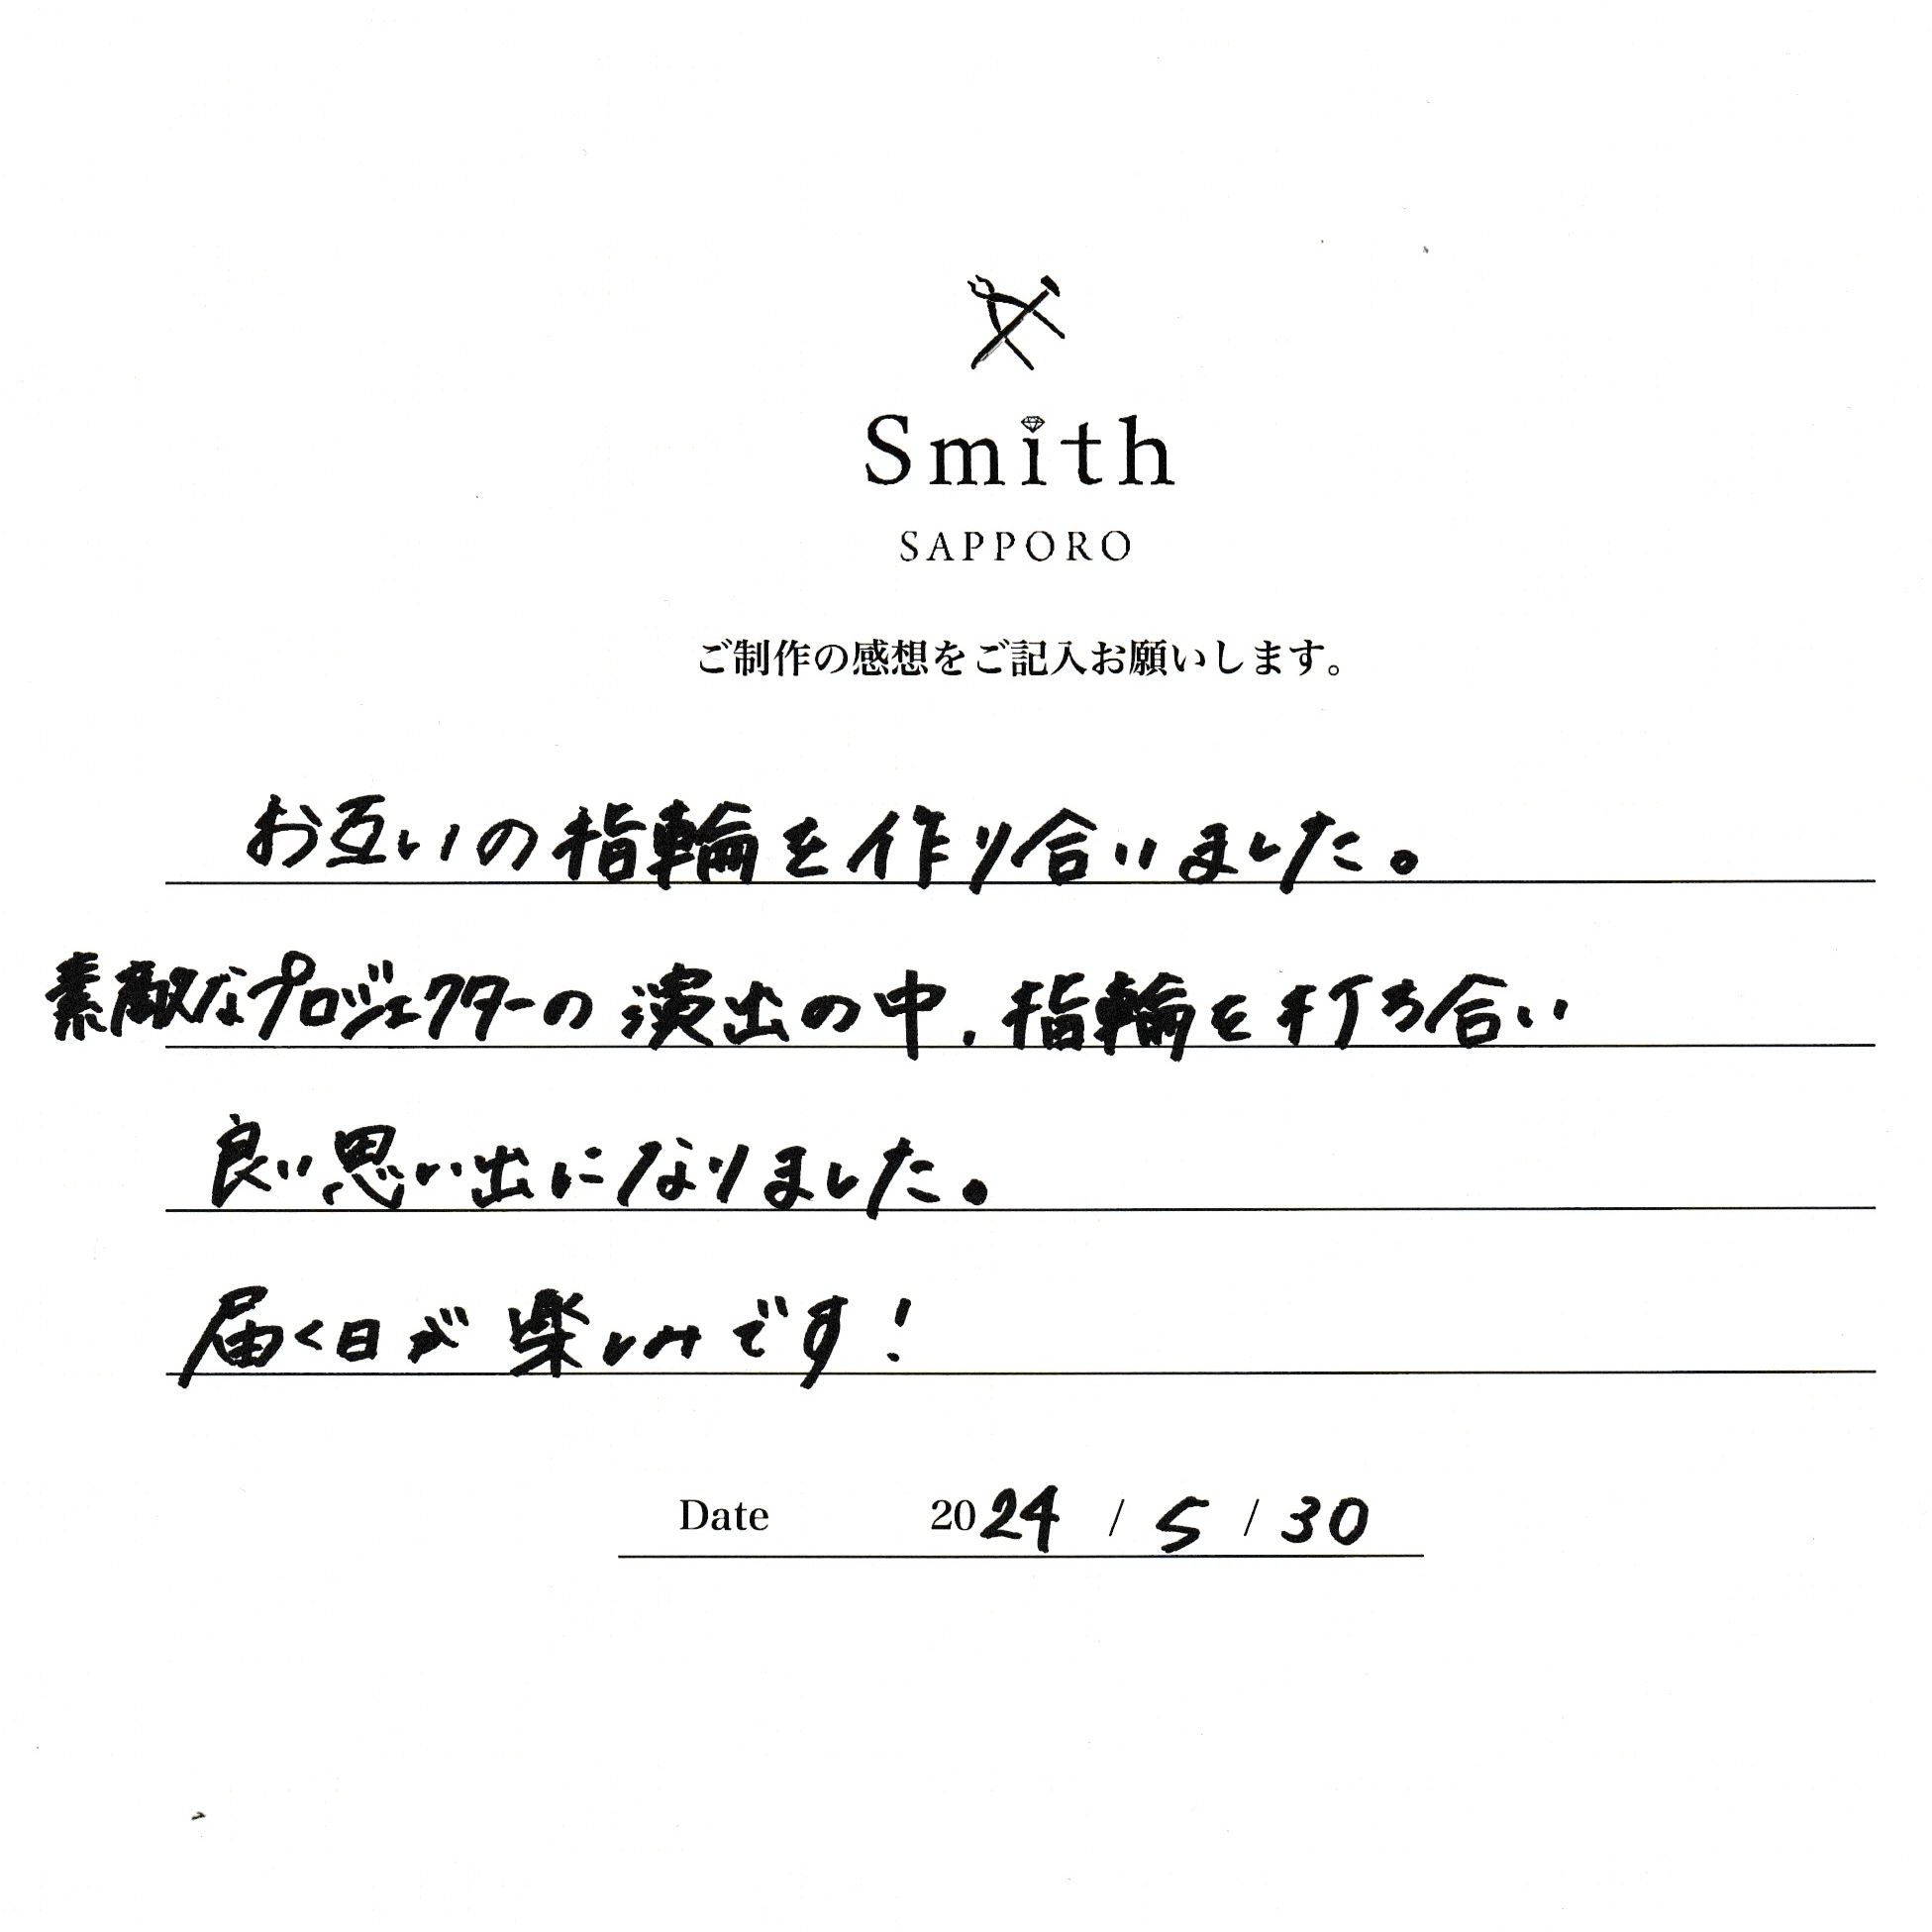 Smith
SAPPORO
ご制作の感想をご記入お願いします。
お互いの指輪を作り合いました。
素敵なプロジェクターの演出の中、指輪を打ち合い
良い思い出になりました。
届く日が楽しみです!
Date 2024 / 5 / 30